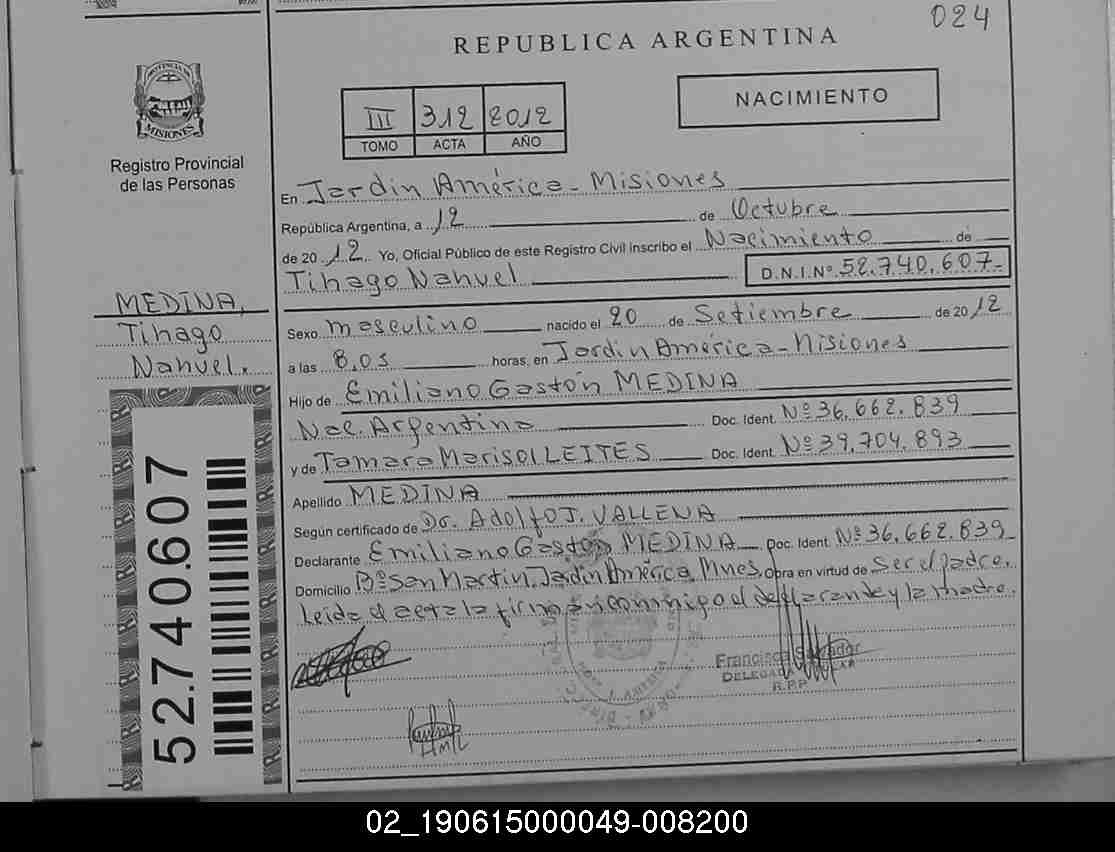 024
REPUBLICA ARGENTINA
PROVINCIA DE
MISIONES
Registro Provincial
de las Personas
III 312 2012
TOMO ACTA AÑO
NACIMIENTO
En Jardin América - Misiones
República Argentina, a 12 de Octubre
de 20 12 Yo, Oficial Público de este Registro Civil inscribo el Nacimiento de
Tihago Nahuel D.N.I.Nº 52.740.607-
MEDINA,
Tihago
Nahuel.
Sexo masculino nacido el 20 de Setiembre de 20 12
a las 8,05 horas, en Jardin América - Misiones
Hijo de Emiliano Gastón MEDINA
Nac. Argentina Doc. Ident. Nº 36.662.839
y de Tamara Marisol LEITES Doc. Ident. Nº 39.704.893
Apellido MEDINA
Según certificado de Dr. Adolfo J. VALLENA
Declarante Emiliano Gastón MEDINA Doc. Ident. Nº 36.662.839
Domicilio Bº San Martin. Jardin América Mnes. Obra en virtud de ser el padre.
Leida el acta la firman conmigo el declarante y la madre.
Salvador
DELEGADA
R.P.P
52.740.607
02_190615000049-008200